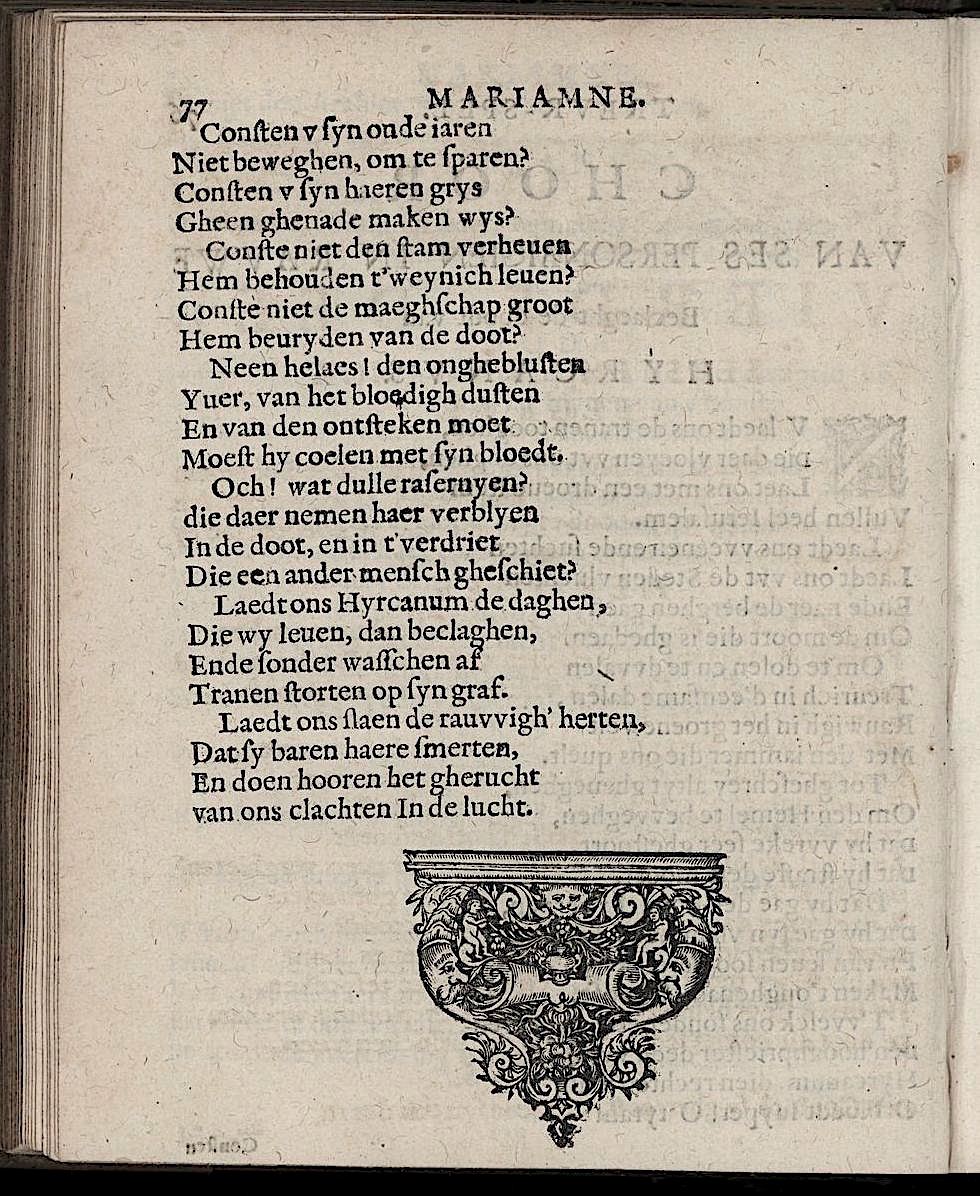 77 MARIAMNE.
Conſten v ſyn oude iaren
Niet beweghen, om te ſparen?
Conſten v ſyn haeren grys
Gheen ghenade maken wys?
Conſte niet den ſtam verheuen
Hem behouden t'weynich leuen?
Conſte niet de maeghſchap groot
Hem beuryden van de doot?
Neen helaes! den onghebluſten
Yuer, van het bloedigh duſten
En van den ontſteken moet
Moeſt hy coelen met ſyn bloedt.
Och! wat dulle raſernyen?
die daer nemen haer verblyen
In de doot, en in t'verdriet
Die een ander menſch gheſchiet?
Laedt ons Hyrcanum de daghen,
Die wy leuen, dan beclaghen,
Ende ſonder waſſchen af
Tranen ſtorten op ſyn graf.
Laedt ons ſlaen de rauvvigh' herten,
Dat ſy baren haere ſmerten,
En doen hooren het gherucht
van ons clachten In de lucht.